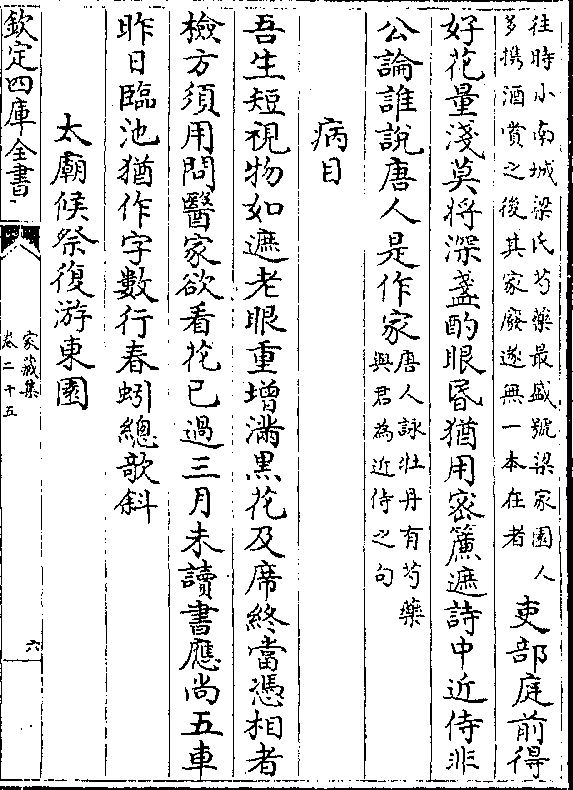 往時小南城梁氏芍藥最盛號梁家園人
多携酒賞之後其家廢遂無一本在者
吏部庭前得
好花量淺莫將深盞酌眼昏猶用密簾遮詩中近侍非
公論誰說唐人是作家
唐人詠牡丹有芍藥
與君為近侍之句
病目
吾生短視物如遮老眼重增滿黑花及席終當憑相者
檢方須用問醫家欲看花已過三月未讀書應尚五車
昨日臨池猶作字數行春蚓總欹斜
太廟候祭復游東園
欽定四庫全書
家藏集
卷二十五
六